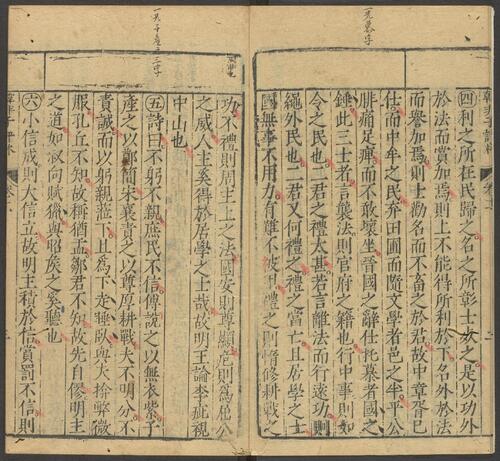 一无慕字
四利之所在民歸之名之所彰士死之是以功外
於法而賞加焉則上不能得所利於下名外於法
而譽加焉則士勸名而不畜之於君故中章胥巳
仕而中牟之民弃田圃而隨文學者邑之半平公
腓痛足痺而不敢壞坐晉國之辭仕托慕者國之
錘此三士者言襲法則官府之籍也行中事則如
令之民也二君之禮太甚若言離法而行遠功則
繩外民也二君又何禮之禮之當亡且居學之士
國無事不用力有難不被甲禮之則惰修耕戰之
功不禮則周主上之法國安則尊顯危則為屈公
之威人主奚得於居學之士哉故明王論李疵視
中山也
五詩曰不躬不親庶民不信傅說之以無衣紫子
產之以鄭簡宋襄責之以尊厚耕戰夫不明分不
責誠而以躬親蒞下且為下走睡臥與夫揜弊微
服孔丘不知故稱猶盂鄒君不知故先自僇明主
之道如叔向賦獵與昭侯之奚聽也
六小信成則大信立故明主積於信賞罰不信則